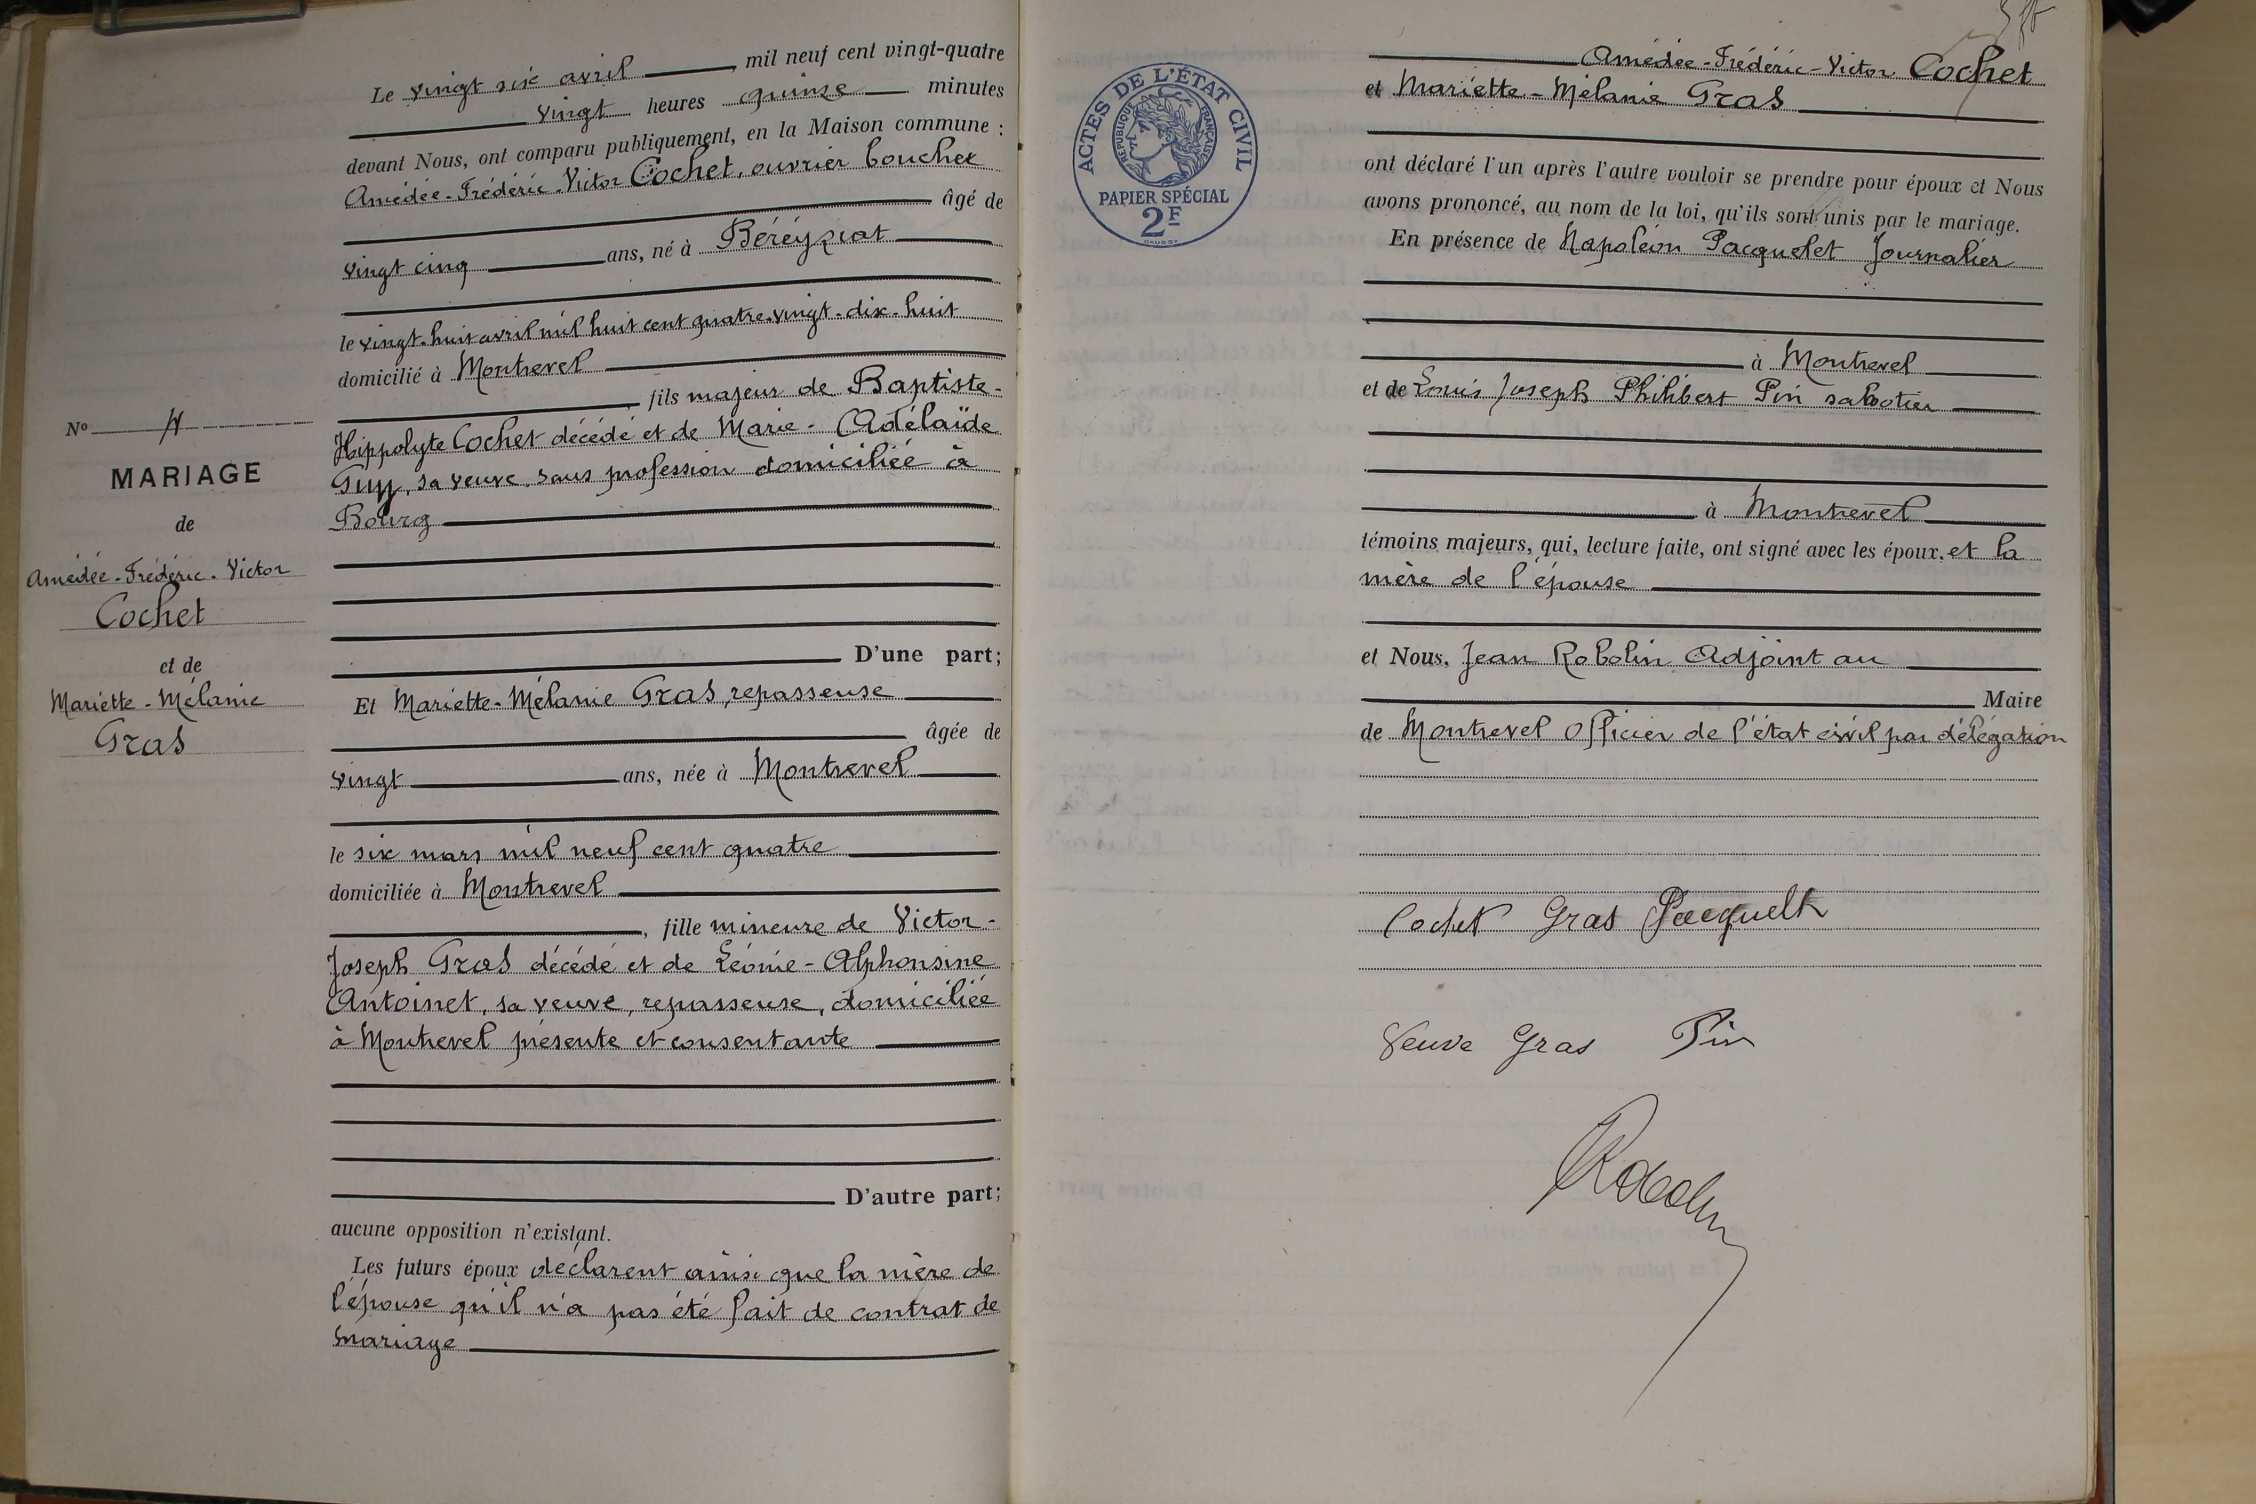 Le vingt six avril, mil neuf cent vingt-quatre
vingt heures quinze minutes
devant Nous, ont comparu publiquement, en la Maison commune :
Amédée-Frédéric-Victor Cochet, ouvrier boucher
âgé de
vingt cinq ans, né à Béréyziat
le vingt-huit avril mil huit cent quatre-vingt-dix-huit
domicilié à Montrevel
fils majeur de Baptiste-
Hippolyte Cochet décédé et de Marie-Adélaïde
Guy, sa veuve, sans profession domiciliée à
Bourg
D'une part;
Et Mariette-Mélanie Gras, repasseuse
âgée de
vingt ans, née à Montrevel
le six mars mil neuf cent quatre
domiciliée à Montrevel
, fille mineure de Victor-
Joseph Gras décédé et de Léonie-Alphonsine
Antoinet, sa veuve, repasseuse, domiciliée
à Montrevel présente et consentante
D'autre part;
aucune opposition n'existant.
Les futurs époux déclarent ainsi que la mère de
l'épouse qu'il n'a pas été fait de contrat de
mariage
No 4
MARIAGE
de
Amédée-Frédéric-Victor
Cochet
et de
Mariette-Mélanie
Gras
ACTES DE L'ÉTAT CIVIL
RÉPUBLIQUE FRANÇAISE
PAPIER SPÉCIAL
2F
Amédée-Frédéric-Victor Cochet
et Mariette-Mélanie Gras
ont déclaré l'un après l'autre vouloir se prendre pour époux et Nous
avons prononcé, au nom de la loi, qu'ils sont unis par le mariage.
En présence de Napoléon Pacquelet Journalier
à Montrevel
et de Louis Joseph Philibert Pin sabotier
à Montrevel
témoins majeurs, qui, lecture faite, ont signé avec les époux, et la
mère de l'épouse
et Nous, Jean Robolin Adjoint au
Maire
de Montrevel Officier de l'état civil par délégation
Cochet Gras Pacquelet
Veuve Gras Pin
Robolin